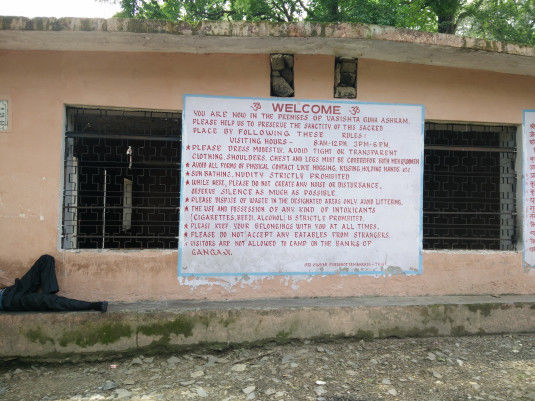 ॐ WELCOME ॐ
YOU ARE NOW IN THE PREMISES OF VASISHTA GUHA ASHRAM.
PLEASE HELP US TO PRESERVE THE SANCTITY OF THIS SACRED
PLACE BY FOLLOWING THESE RULES:
VISITING HOURS- 9AM-12PM 3PM-6PM
★ PLEASE DRESS MODESTLY. AVOID TIGHT OR TRANSPARENT
CLOTHING. SHOULDERS, CHEST AND LEGS MUST BE COVERED FOR BOTH MEN & WOMEN
★ AVOID ALL FORMS OF PHYSICAL CONTACT LIKE HUGGING, KISSING, HOLDING HANDS
★ SUN BATHING, NUDITY STRICTLY PROHIBITED
★ WHILE HERE, PLEASE DO NOT CREATE ANY NOISE OR DISTURBANCE,
OBSERVE SILENCE AS MUCH AS POSSIBLE
★ PLEASE DISPOSE OF WASTE IN THE DESIGNATED AREAS ONLY. AVOID LITTERING.
★ THE USE AND POSSESSION OF ANY KIND OF INTOXICANTS
(CIGARETTES, WEED, ALCOHOL) IS STRICTLY PROHIBITED.
★ PLEASE KEEP YOUR BELONGINGS WITH YOU AT ALL TIMES.
★ PLEASE DO NOT ACCEPT ANY EATABLES FROM STRANGERS.
★ VISITORS ARE NOT ALLOWED TO CAMP ON THE BANKS OF
GANGAJI.